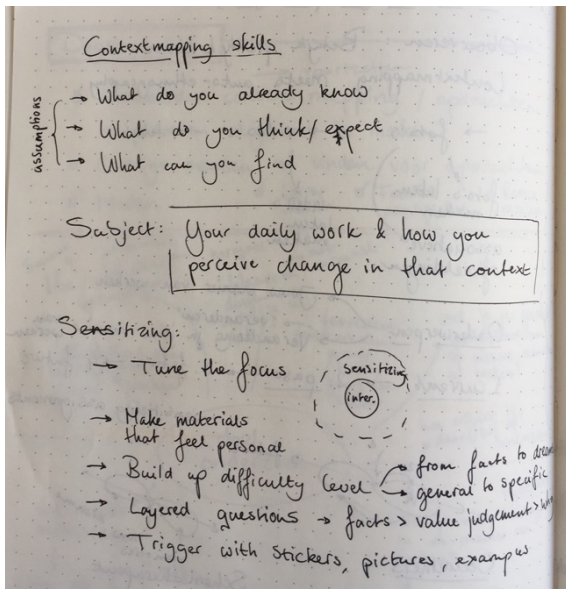 Contextmapping skills
assumptions
→ What do you already know
→ What do you think/ expect
→ What can you find
Subject: Your daily work & how you
perceive change in that context
Sensitizing:
→ Tune the focus
sensitizing
inter.
→ Make materials
that feel personal
→ Build up difficulty level
→ from facts to
→ general to specific
→ Layered questions → facts > value judgement >
→ Trigger with stickers, pictures,